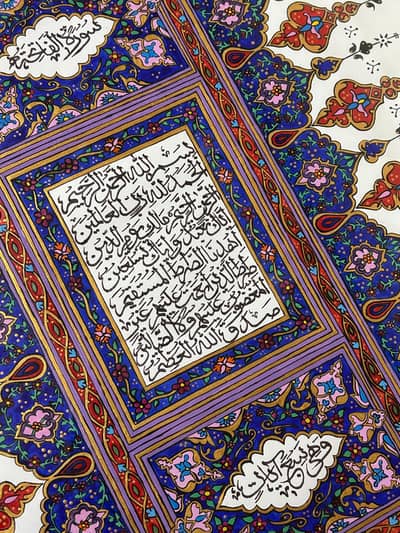 سورة الفاتحة
بسم الله الرحمن الرحيم
الحمد لله رب العالمين
الرحمن الرحيم مالك يوم الدين
إياك نعبد وإياك نستعين
اهدنا الصراط المستقيم
صراط الذين أنعمت عليهم غير
المغضوب عليهم ولا الضالين
صدق الله العظيم
وهي سبع آيات